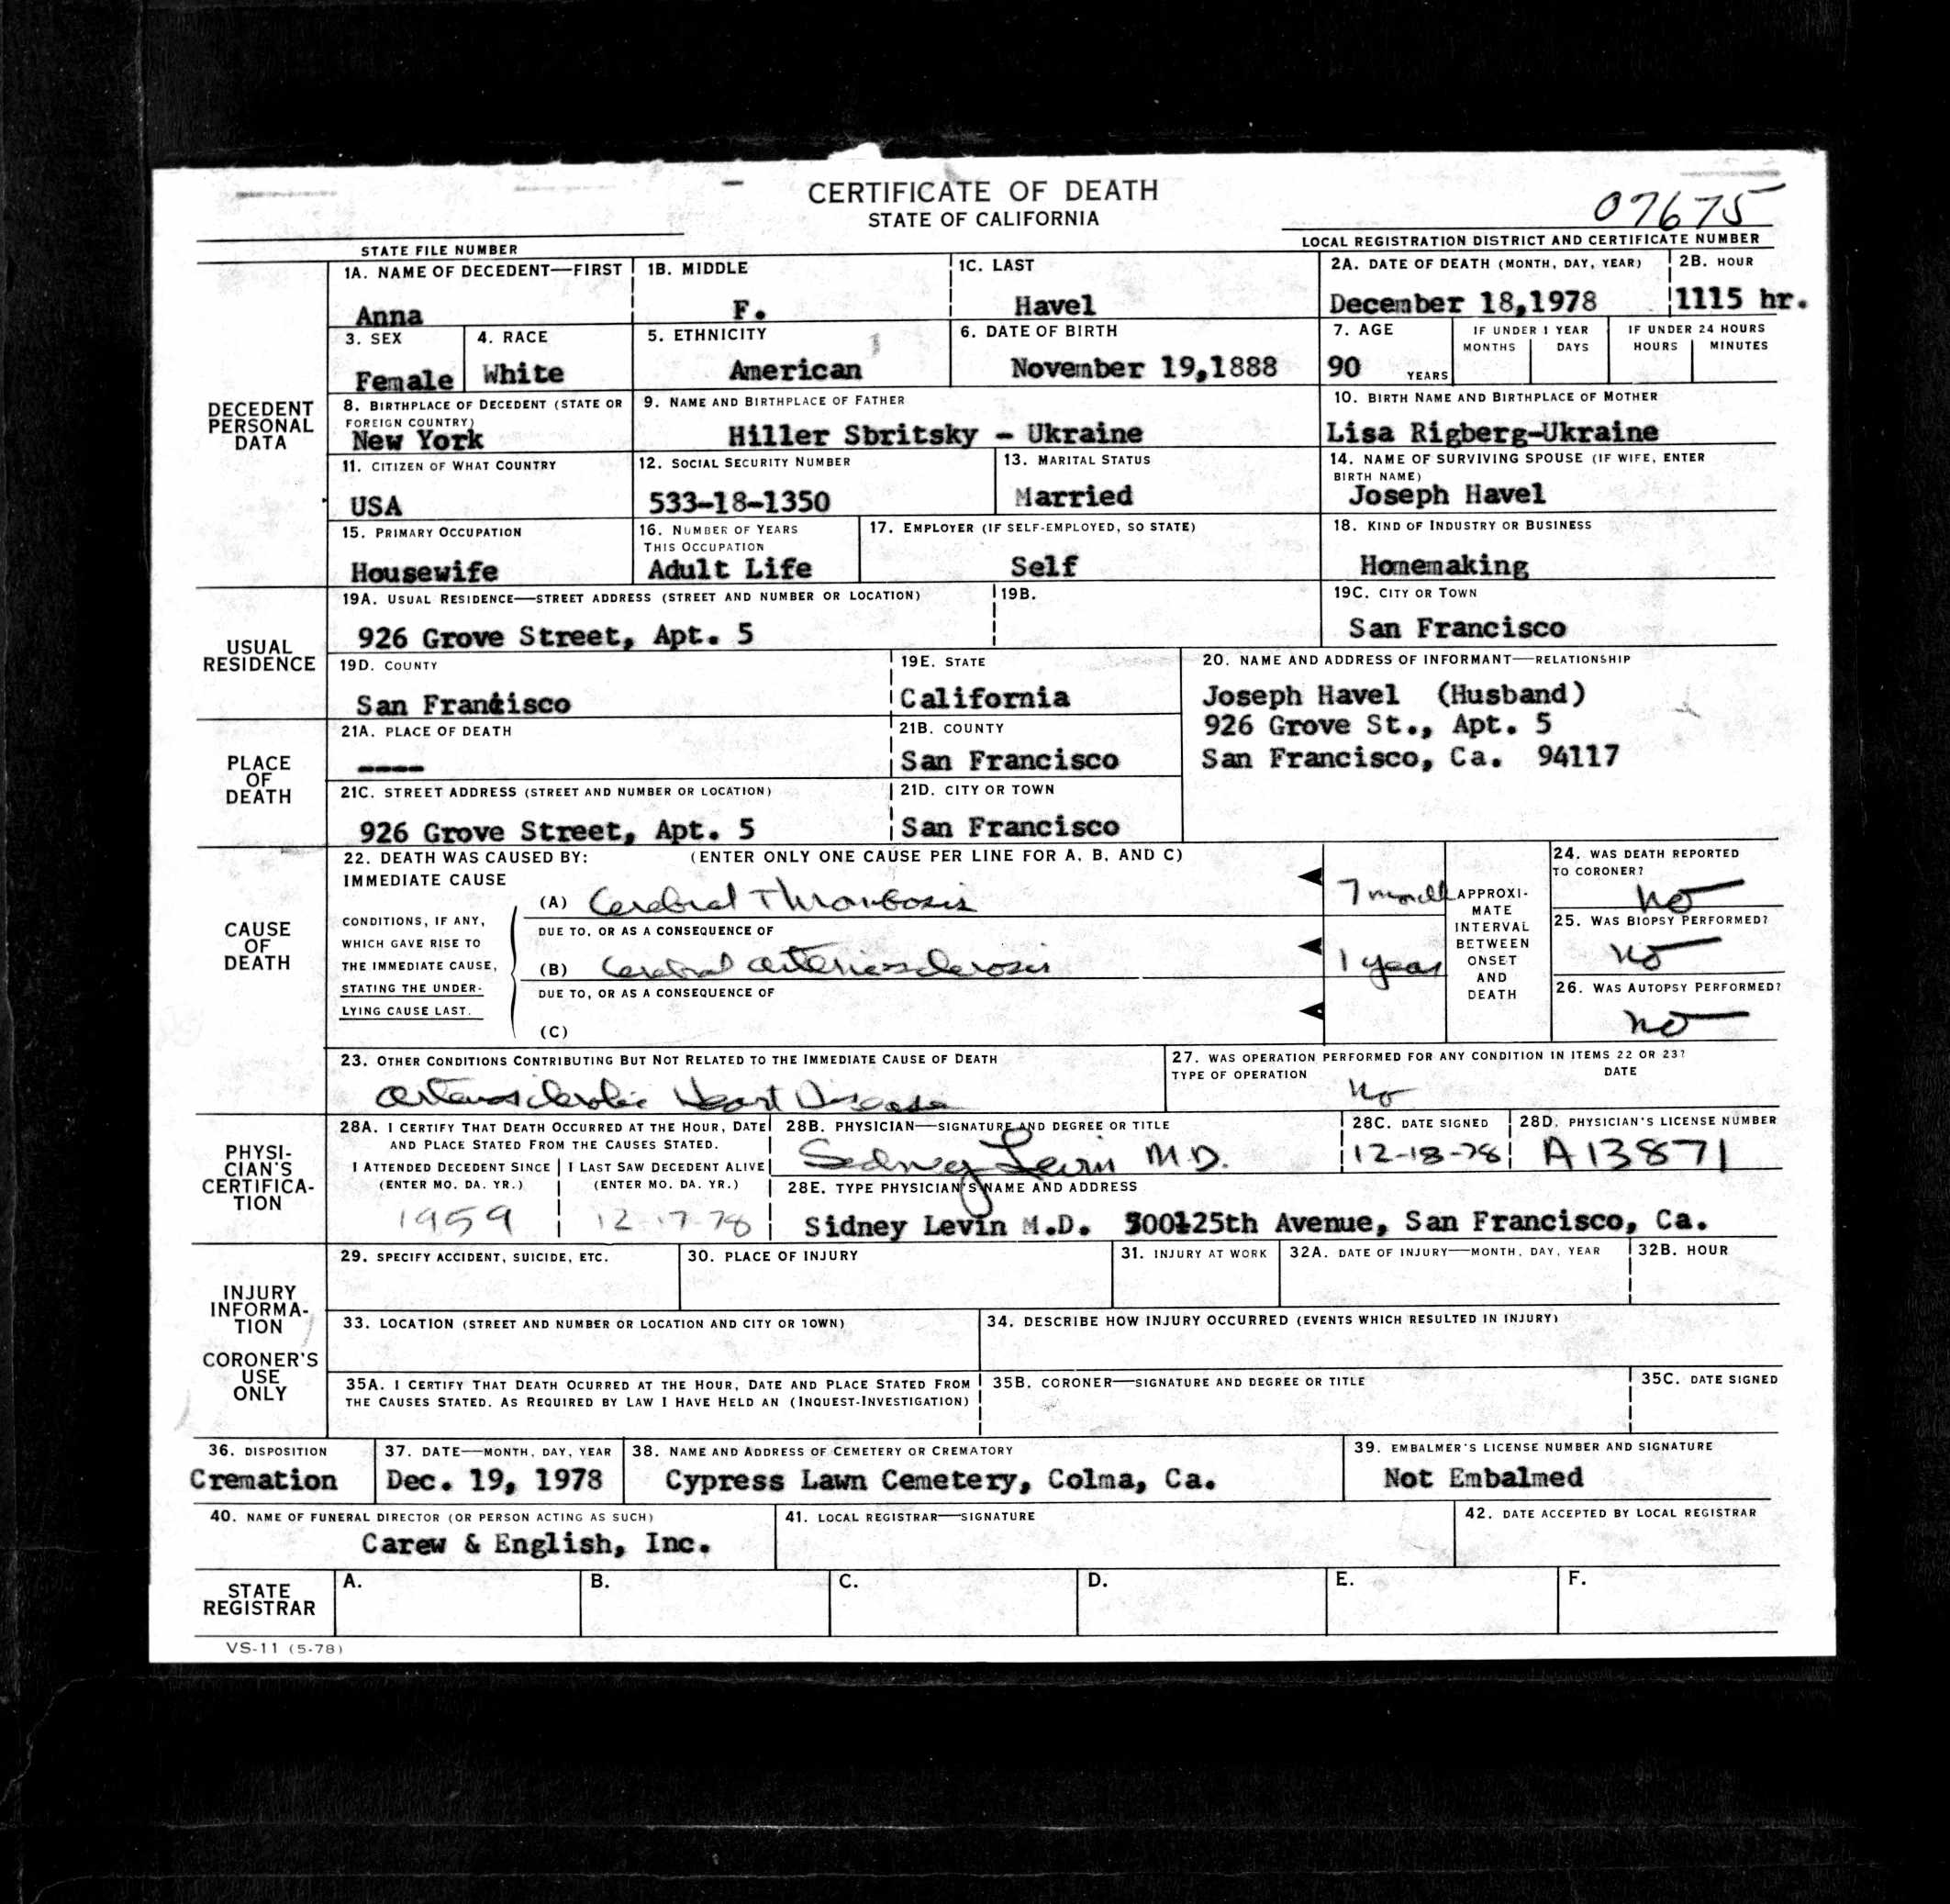 CERTIFICATE OF DEATH
STATE OF CALIFORNIA
07675
STATE FILE NUMBER
LOCAL REGISTRATION DISTRICT AND CERTIFICATE NUMBER
DECEDENT PERSONAL DATA
1A. NAME OF DECEDENT—FIRST
Anna
1B. MIDDLE
F.
1C. LAST
Havel
2A. DATE OF DEATH (MONTH, DAY, YEAR)
December 18,1978
2B. HOUR
1115 hr.
3. SEX
Female
4. RACE
White
5. ETHNICITY
American
6. DATE OF BIRTH
November 19,1888
7. AGE
90 YEARS
IF UNDER 1 YEAR
MONTHS DAYS
IF UNDER 24 HOURS
HOURS MINUTES
8. BIRTHPLACE OF DECEDENT (STATE OR
FOREIGN COUNTRY)
New York
9. NAME AND BIRTHPLACE OF FATHER
Hiller Sbritsky - Ukraine
10. BIRTH NAME AND BIRTHPLACE OF MOTHER
Lisa Rigberg-Ukraine
11. CITIZEN OF WHAT COUNTRY
USA
12. SOCIAL SECURITY NUMBER
533-18-1350
13. MARITAL STATUS
Married
14. NAME OF SURVIVING SPOUSE (IF WIFE, ENTER
BIRTH NAME)
Joseph Havel
15. PRIMARY OCCUPATION
Housewife
16. NUMBER OF YEARS
THIS OCCUPATION
Adult Life
17. EMPLOYER (IF SELF-EMPLOYED, SO STATE)
Self
18. KIND OF INDUSTRY OR BUSINESS
Homemaking
USUAL RESIDENCE
19A. USUAL RESIDENCE—STREET ADDRESS (STREET AND NUMBER OR LOCATION)
926 Grove Street, Apt. 5
19B.
19C. CITY OR TOWN
San Francisco
19D. COUNTY
San Francisco
19E. STATE
California
20. NAME AND ADDRESS OF INFORMANT—RELATIONSHIP
Joseph Havel (Husband)
926 Grove St., Apt. 5
San Francisco, Ca. 94117
PLACE OF DEATH
21A. PLACE OF DEATH
----
21B. COUNTY
San Francisco
21C. STREET ADDRESS (STREET AND NUMBER OR LOCATION)
926 Grove Street, Apt. 5
21D. CITY OR TOWN
San Francisco
CAUSE OF DEATH
22. DEATH WAS CAUSED BY: (ENTER ONLY ONE CAUSE PER LINE FOR A, B, AND C)
IMMEDIATE CAUSE
(A) Cerebral Thrombosis
7 month
CONDITIONS, IF ANY,
WHICH GAVE RISE TO
THE IMMEDIATE CAUSE,
STATING THE UNDER-
LYING CAUSE LAST.
DUE TO, OR AS A CONSEQUENCE OF
(B) Cerebral arteriosclerosis
1 year
DUE TO, OR AS A CONSEQUENCE OF
(C)
APPROXI-
MATE
INTERVAL
BETWEEN
ONSET
AND
DEATH
24. WAS DEATH REPORTED
TO CORONER?
No
25. WAS BIOPSY PERFORMED?
No
26. WAS AUTOPSY PERFORMED?
No
23. OTHER CONDITIONS CONTRIBUTING BUT NOT RELATED TO THE IMMEDIATE CAUSE OF DEATH
Arteriosclerotic Heart Disease
27. WAS OPERATION PERFORMED FOR ANY CONDITION IN ITEMS 22 OR 23?
TYPE OF OPERATION DATE
No
PHYSI-
CIAN'S
CERTIFICA-
TION
28A. I CERTIFY THAT DEATH OCCURRED AT THE HOUR, DATE
AND PLACE STATED FROM THE CAUSES STATED.
I ATTENDED DECEDENT SINCE
(ENTER MO. DA. YR.)
1959
I LAST SAW DECEDENT ALIVE
(ENTER MO. DA. YR.)
12-17-78
28B. PHYSICIAN—SIGNATURE AND DEGREE OR TITLE
Sidney Levin M.D.
28C. DATE SIGNED
12-18-78
28D. PHYSICIAN'S LICENSE NUMBER
A13871
28E. TYPE PHYSICIAN'S NAME AND ADDRESS
Sidney Levin M.D. 25th Avenue, San Francisco, Ca.
INJURY
INFORMA-
TION
CORONER'S
USE
ONLY
29. SPECIFY ACCIDENT, SUICIDE, ETC.
30. PLACE OF INJURY
31. INJURY AT WORK
32A. DATE OF INJURY—MONTH, DAY, YEAR
32B. HOUR
33. LOCATION (STREET AND NUMBER OR LOCATION AND CITY OR TOWN)
34. DESCRIBE HOW INJURY OCCURRED (EVENTS WHICH RESULTED IN INJURY)
35A. I CERTIFY THAT DEATH OCURRED AT THE HOUR, DATE AND PLACE STATED FROM
THE CAUSES STATED. AS REQUIRED BY LAW I HAVE HELD AN (INQUEST-INVESTIGATION)
35B. CORONER—SIGNATURE AND DEGREE OR TITLE
35C. DATE SIGNED
36. DISPOSITION
Cremation
37. DATE—MONTH, DAY, YEAR
Dec. 19, 1978
38. NAME AND ADDRESS OF CEMETERY OR CREMATORY
Cypress Lawn Cemetery, Colma, Ca.
39. EMBALMER'S LICENSE NUMBER AND SIGNATURE
Not Embalmed
40. NAME OF FUNERAL DIRECTOR (OR PERSON ACTING AS SUCH)
Carew & English, Inc.
41. LOCAL REGISTRAR—SIGNATURE
42. DATE ACCEPTED BY LOCAL REGISTRAR
STATE
REGISTRAR
A. B. C. D. E. F.
VS-11 (5-78)